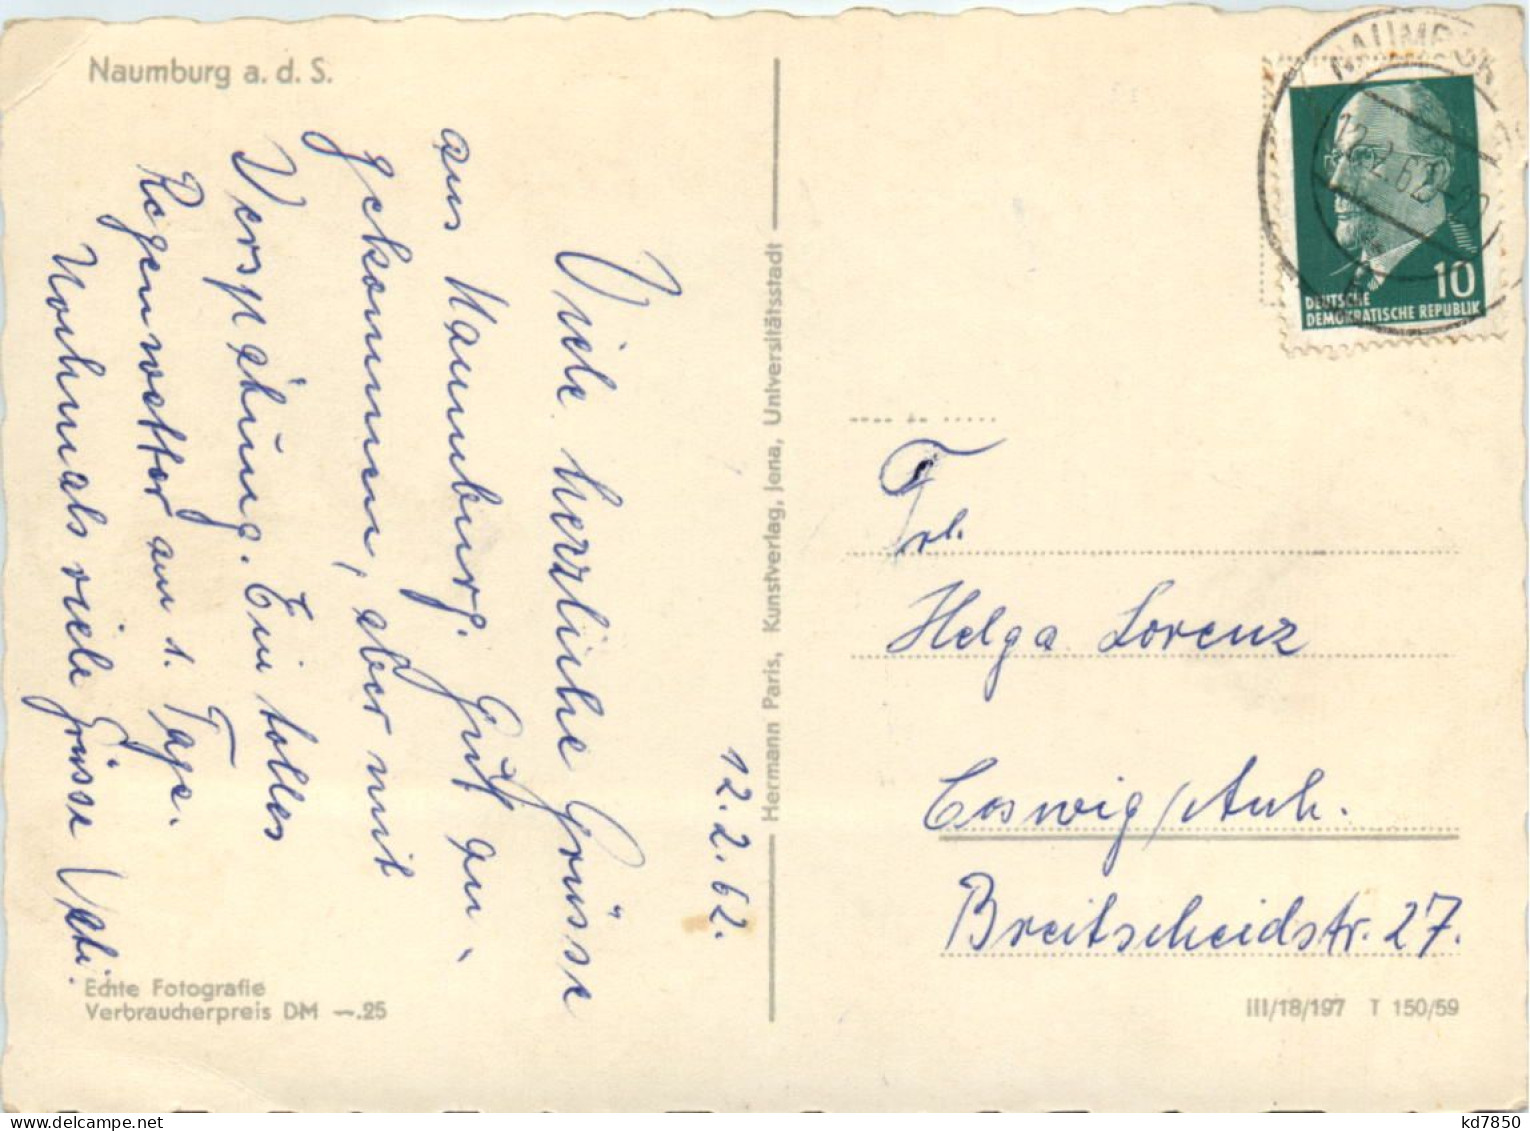 Naumburg a. d. S.
12.2.62.
Viele herzliche Grüsse
aus Naumburg. Gut an-
gekommen, aber mit
Verspätung. Ein tolles
Regenwetter am 1. Tage.
Nochmals viele Grüsse
Echte Fotografie
Verbraucherpreis DM —.25
Hermann Paris, Kunstverlag, Jena, Universitätsstadt
NAUMBURG
12.2.62
10
DEUTSCHE
DEMOKRATISCHE REPUBLIK
Frl.
Helga Lorenz
Coswig/Anh.
Breitscheidstr. 27.
III/18/197 T 150/59
kd7850